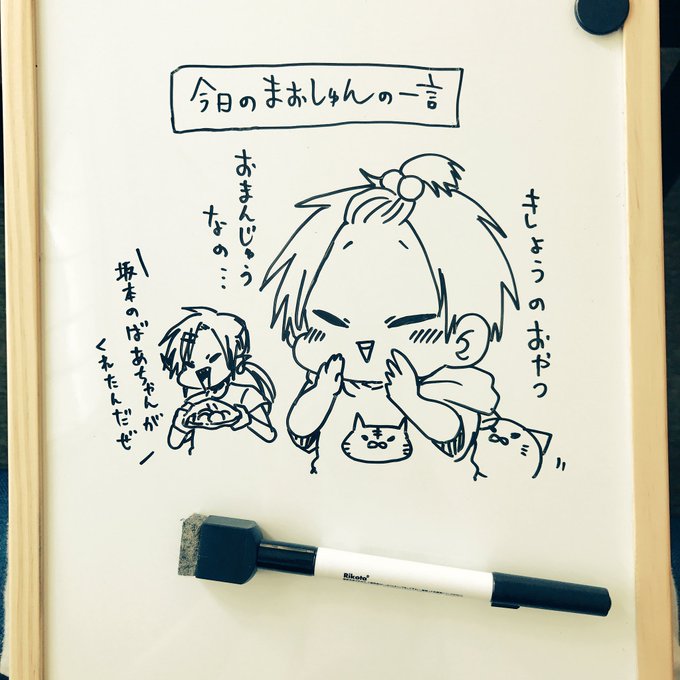 今日のまおしゅんの一言
きょうのおやつ
おまんじゅう
なの…
坂本のばあちゃんが
くれたんだぜ
Rikato